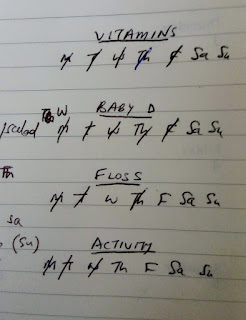 VITAMINS
M T W Th F Sa Su
Th W BABY D
M T W Th F Sa Su
FLOSS
Th
M T W Th F Sa Su
sa
(Su) ACTIVITY
M T W Th F Sa Su